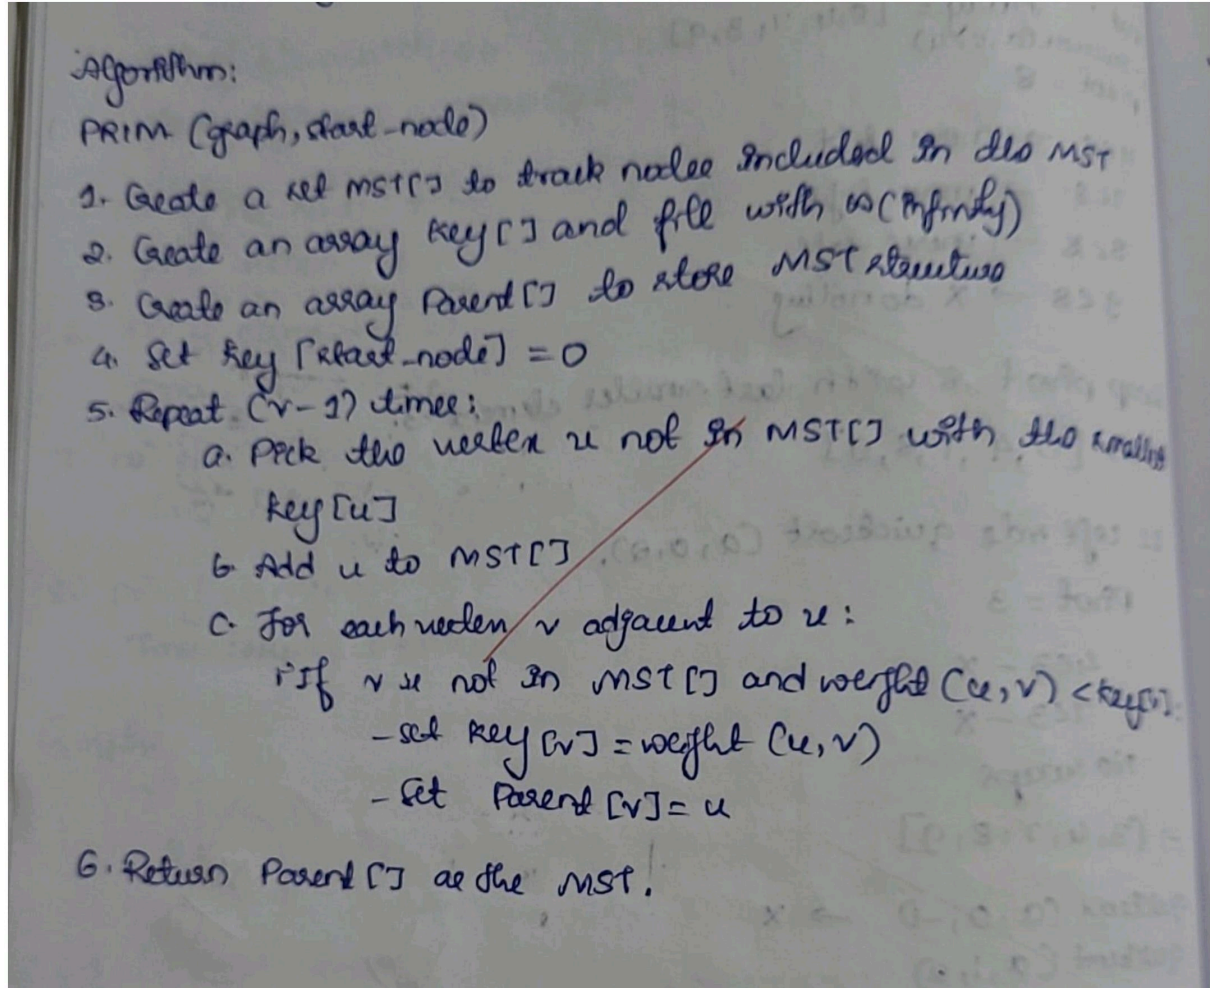 Algorithm:
PRIM (graph, start_node)
1. Create a set MST[] to track nodes included in the MST
2. Create an array Key[] and fill with ∞ (infinity)
3. Create an array Parent[] to store MST structure
4. Set key [start_node] = 0
5. Repeat (v-1) times:
a. Pick the vertex u not in MST[] with the smallest
key[u]
b. Add u to MST[]
c. For each vertex v adjacent to u:
i. If v is not in MST[] and weight (u, v) < key[v].
- set key [v] = weight (u, v)
- set Parent [v] = u
6. Return Parent [] as the MST.